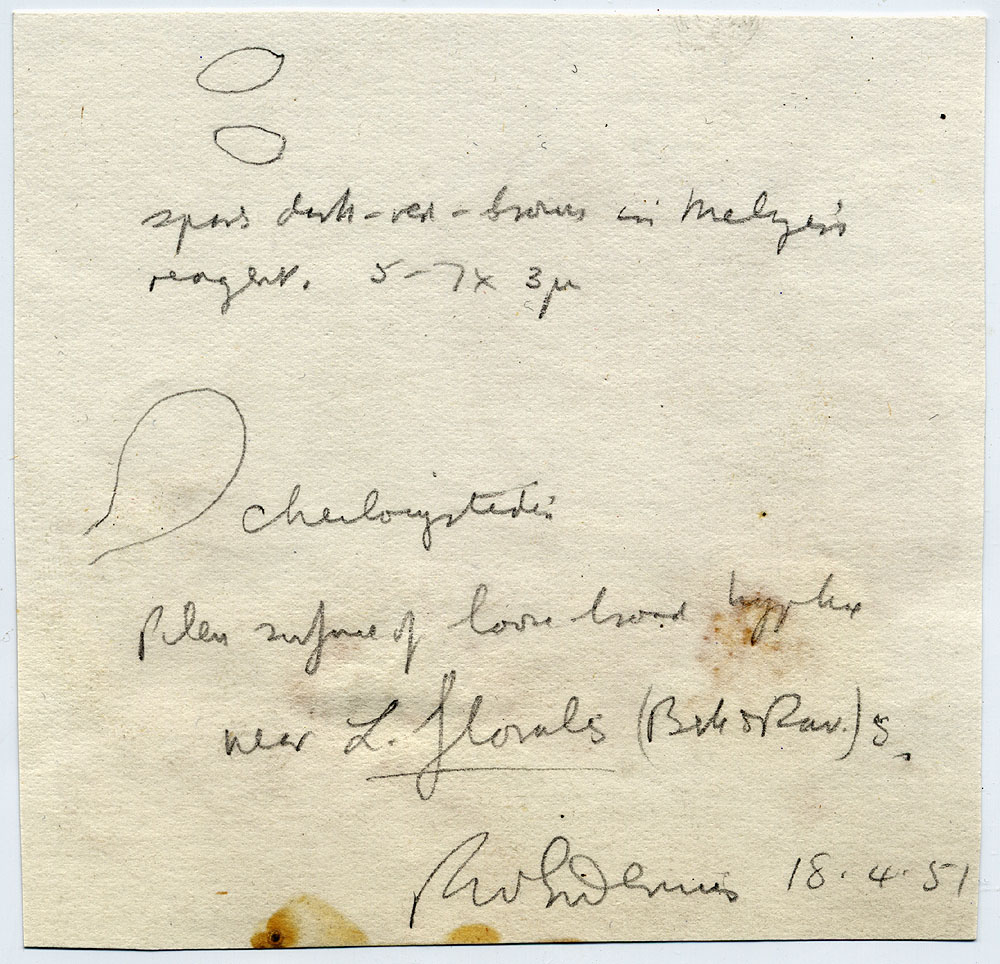 spores dark-red-brown in Melzer's
reagent. 5-7x 3μ
cheilocystidia
Pileus surface of loose broad hyphae
near L. floralis (Berk & Rav.) S.
RWG Dennis 18.4.51